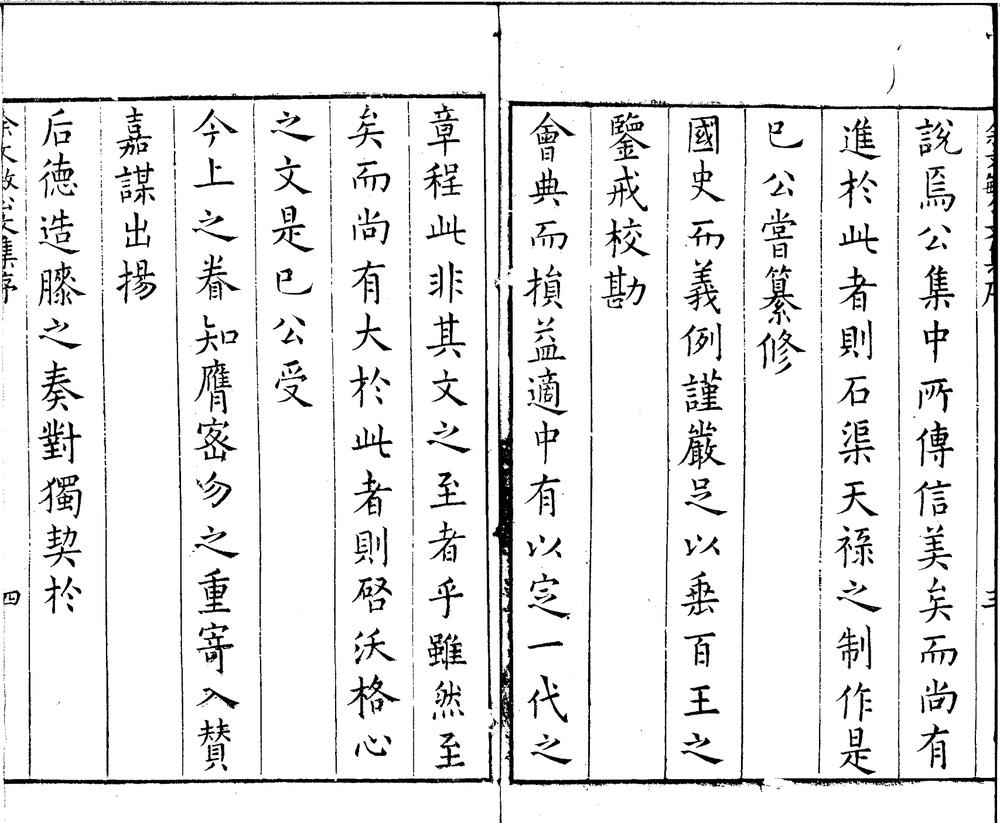 說焉公集中所傳信美矣而尚有
進於此者則石渠天祿之制作是
已公嘗纂修
國史而義例謹嚴足以垂百王之
鑒戒校勘
會典而損益適中有以定一代之
章程此非其文之至者乎雖然至
矣而尚有大於此者則啓沃格心
之文是已公受
今上之眷知膺密勿之重寄入贊
嘉謀出揚
后德造膝之奏對獨契於
四